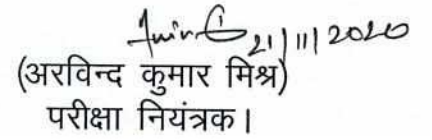 21/11/2020
(अरविन्द कुमार मिश्र)
परीक्षा नियंत्रक।